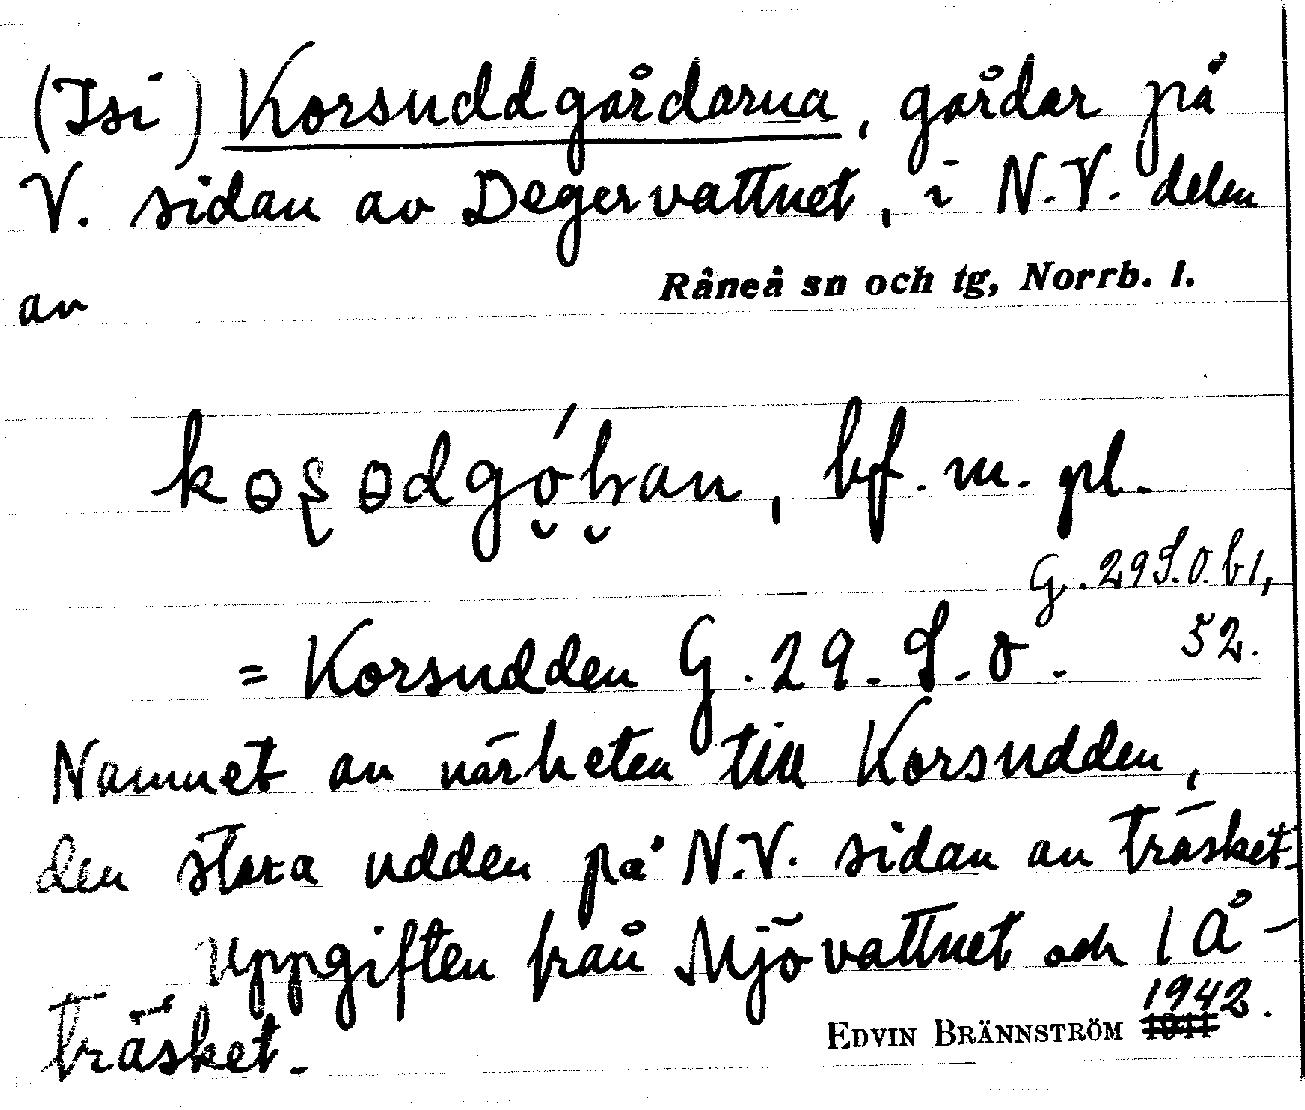 (Isi) Korsuddgårdarna, gårdar på
V. sidan av Degervattnet, i N.V. delen
av Råneå sn och tg, Norrb. l.
bf. m. pl.
G. 29 S.O. b 1,
52.
= Korsudden G. 29. S.O.
Namnet av närheten till Korsudden,
den stora udden på N.V. sidan av träsket.
Uppgiften från Mjövattnet och 1 Å-
träsket.
EDVIN BRÄNNSTRÖM 1942.